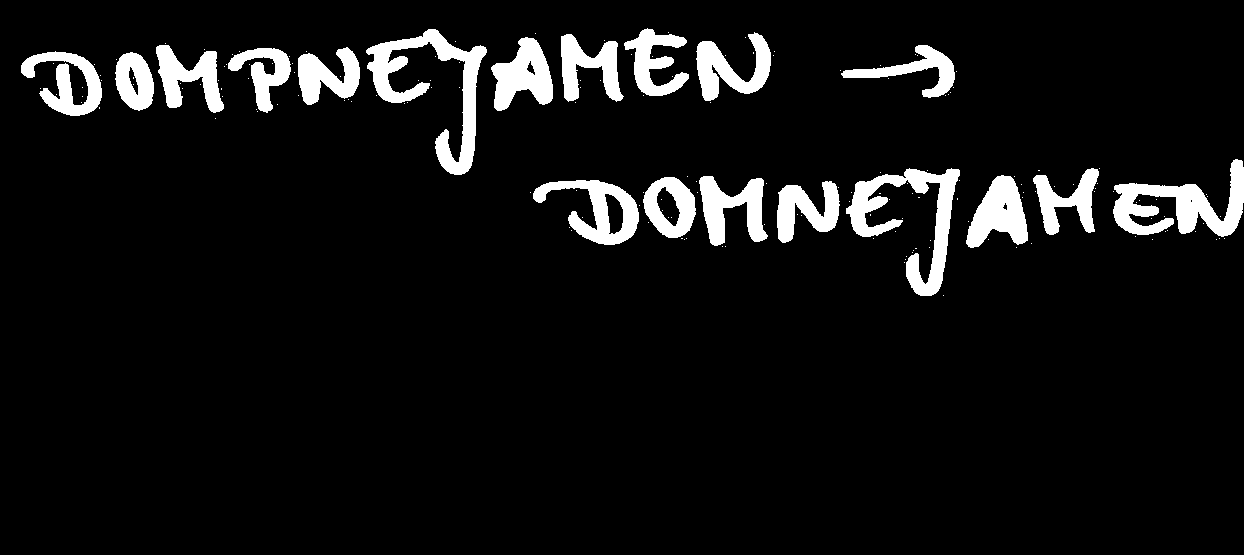 DOMPNEJAMEN →
DOMNEJAMEN